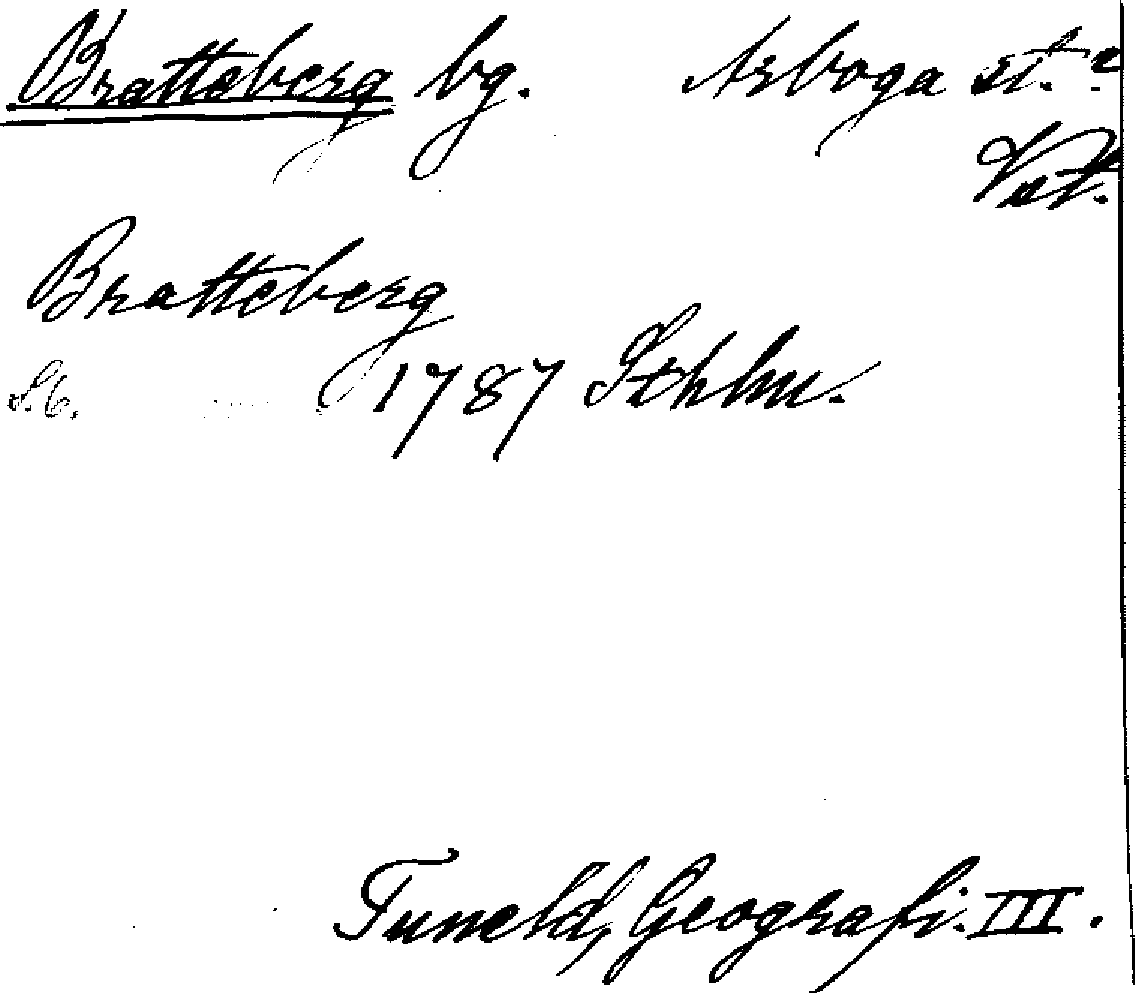 Bratteberg bg. Arboga st.
Vst.
Bratteberg
1787 Sthlm.
Tuneld, Geografi. III.